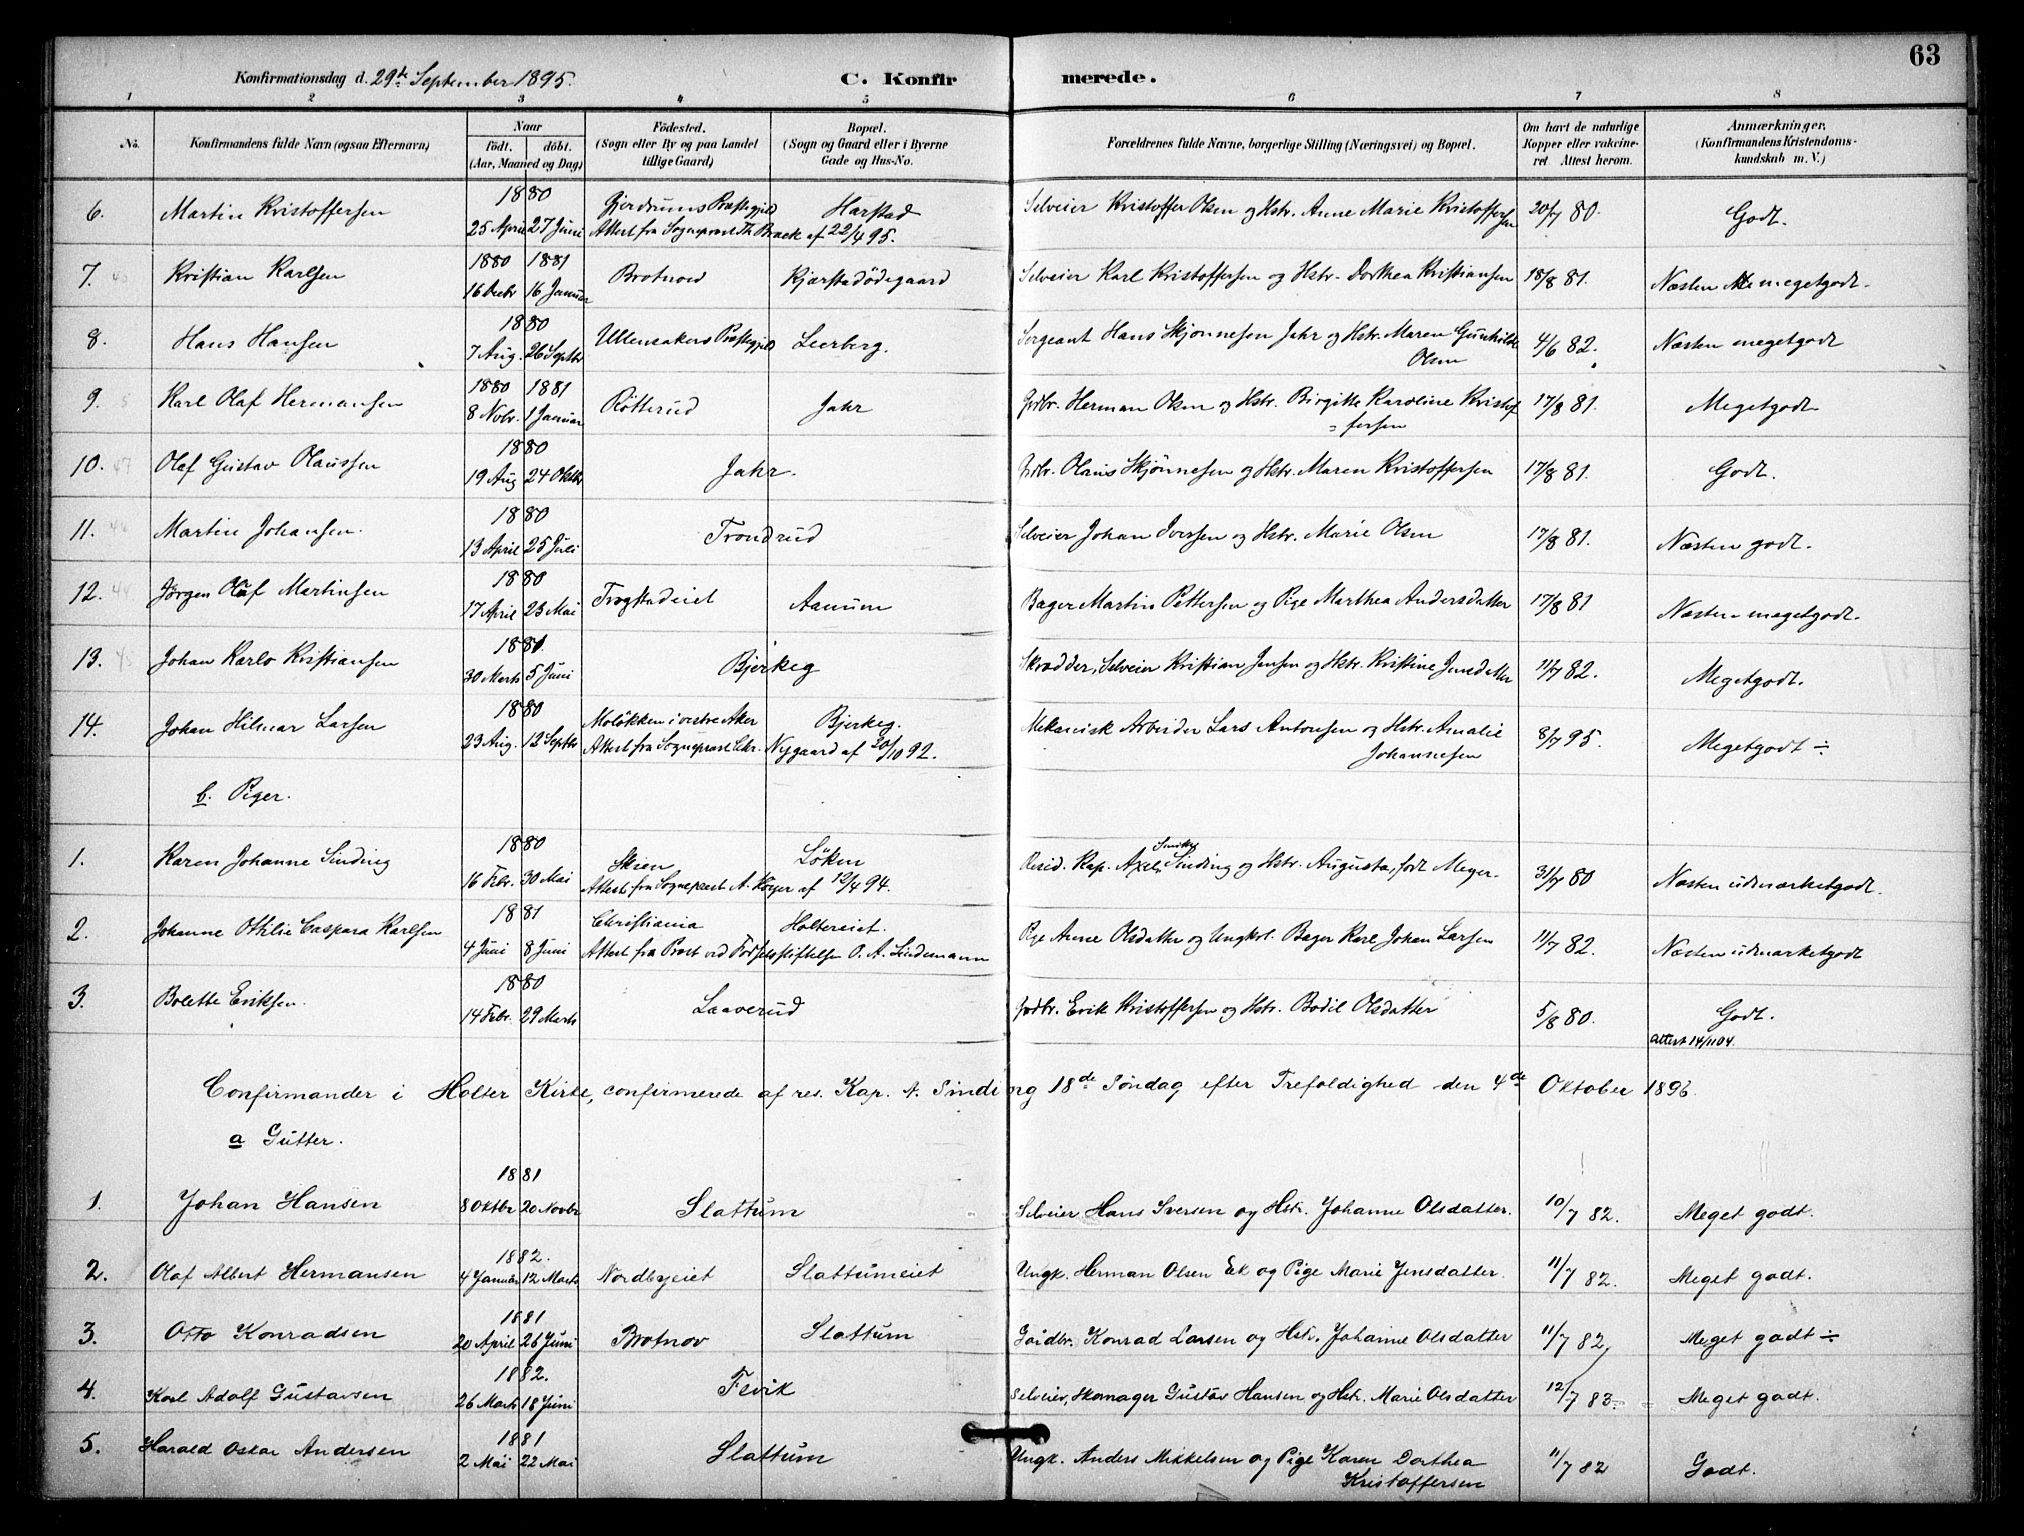 63
Konfirmationsdag d. 29de September 1895. C. Konfir merede.
1 2 3 4 5 6 7 8
No. Konfirmandens fulde Navn (ogsaa Efternavn) Naar födt. döbt. (Aar, Maaned og Dag) Födested. (Sogn eller By og paa Landet tillige Gaard) Bopæl. (Sogn og Gaard eller i Byerne Gade og Hus-No. Forældrenes fulde Navne, borgerlige Stilling (Næringsvei) og Bopæl. Om havt de naturlige Kopper eller vakcineret. Attest herom. Anmærkninger. (Konfirmandens Kristendomskundskab m. V.)
6. Martin Kristoffersen 1880 25 April 27 Juni Gjerdrums Præstegjeld Harstad Attest fra Sogneprest Th. Brack af 22/4 95. Selveier Kristoffer Olsen og Hstr. Anne Marie Kristoffersen 20/7 80. Godt.
7. Kristian Karlsen 1880 1881 16 Decbr 16 Januar Brotnov Kjærstadödegaard Selveier Karl Kristoffersen og Hstr. Dorthea Kristiansen 18/8 81. Næsten megetgodt.
8. Hans Hansen 1880 7 Aug. 26 Septbr Ullensakers Præstegjeld Leerberg. Sergeant Hans Skjönnesen Jahr og Hstr. Maren Gunhilde Olsen 4/6 82. Næsten megetgodt
9. Karl Olaf Hermansen 1880 1881 8 Nobr. 1 Januar Rötterud Jahr Grdbr. Herman Olsen og Hstr. Birgitte Karoline Kristof=fersen 17/8 81. Megetgodt
10. Olaf Gustav Olaussen 1880 19 Aug 24 Oktbr Jahr. Grdbr. Olaus Skjönnesen og Hstr. Maren Kristoffersen 17/8 81. Godt.
11. Martin Johansen. 1880 13 April 25 Juli Trondrud Selveier Johan Iverssen og Hstr. Marie Olsen 17/8 81. Næsten godt.
12. Jörgen Olaf Martinsen 1880 17 April 23 Mai Trogstadeiet Aanum Bager Martin Pettersen og Pige Marthea Andersdatter 17/8 81 Næsten megetgodt.
13. Johan Karlo Kristiansen 1881. 30 Marts 5 Juni Bjerkeg Skrædder, Selveier Kristian Jensen og Hstr. Kristine Jensdatter 11/7 82. Megetgodt.
14. Johan Hilmar Larsen 1880 23 Aug. 12 Septbr Molökken i vestre Aker Bjerkeg. Attest fra Sogneprest Chr. Nygaard af 20/10 92. Mekanisk Arbeider Lars Antonsen og Hstr. Amalie Johannesen 8/7 95. Megetgodt ÷
b. Piger.
1. Karen Johanne Sinding 1880 16 Febr. 30 Mai Skien Löken Attest fra Sogneprest A. af 12/4 94. Resid. Kap. Axel Sinding og Hstr. Augusta, født Meyer. 31/7 80 Næsten udmærketgodt.
2. Johanne Othilie Caspara Karlsen 1881 4 Juni 8 Juni Christiania Holtereiet. Attest fra Prest ved Födselsstiftelsen O. A. Lindemann Pige Anne Olsdatter og Ungkrl. Bager Karl Johan Larsen 11/7 82. Næsten udmærketgodt
3. Bolette Eriksen. 1880 14 Febr. 29 Marts Laaverud Grdbr. Erik Kristoffersen og Hstr. Bodil Olsdatter 5/8 80. Godt.
Attest 14/11 04.
Confirmander i Holter Kirke, confirmerede af res. Kap. A. Sinding 18de Søndag efter Trefoldighed den 4de Oktober 1896.
a Gutter.
1. Johan Hansen 1881 8 Oktbr 20 Novbr Slattum Selveier Hans Iversen og Hstr. Johanne Olsdatter. 10/7 82. Meget godt.
2. Olaf Albert Hermansen 1882. 4 Januar 12 Marts Nordbyeiet Slattumeiet Ungk. Herman Olsen Ek og Pige Marie Jensdatter. 11/7 82. Meget godt.
3. Otto Konradsen 1881 20 April 26 Juni Brotnov Slattum Gaidbr. Konrad Larsen og Hstr. Johanne Olsdatter 11/7 82, Meget godt ÷
4. Karl Adolf Gustavsen 1882. 26 Marts 18 Juni Fevik Selveier, Skomager Gustav Hansen og Hstr. Marie Olsdatter 12/7 83. Meget godt.
5. Harald Oskar Andersen 1881 2 Mai 22 Mai Slattum Ungk. Anders Mikkelsen og Pige Karen Dorthea Kristoffersen 11/7 82 Godt.